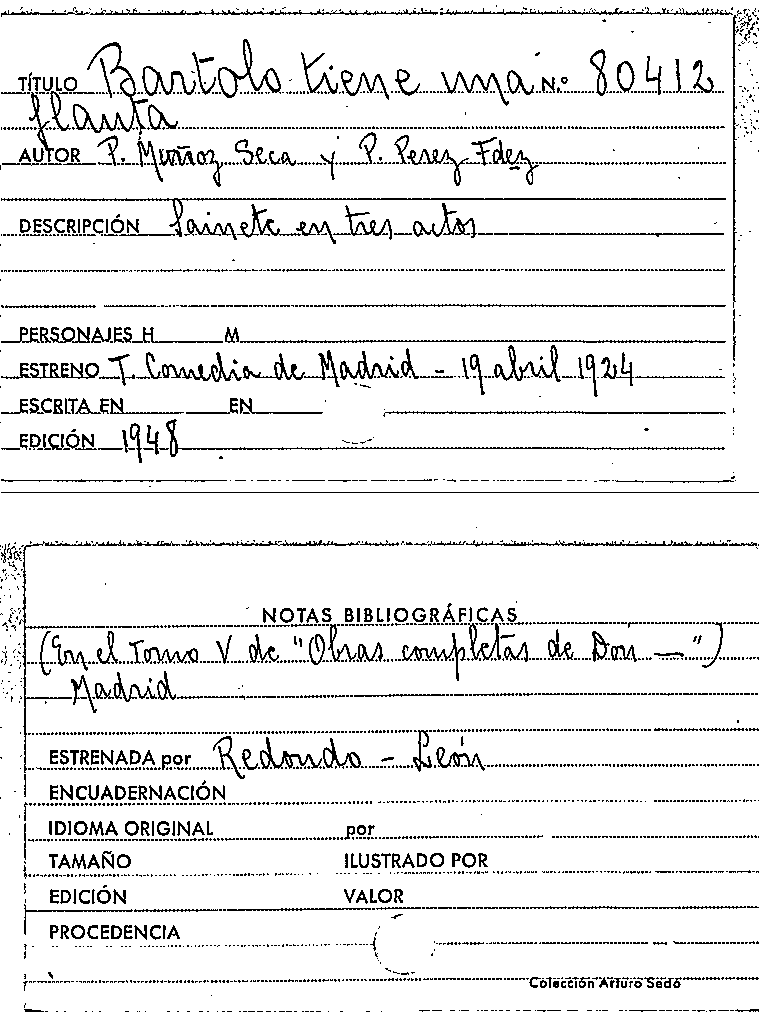 TÍTULO Bartolo tiene una N.º 80412
flauta
AUTOR P. Muñoz Seca y P. Perez Fdez
DESCRIPCIÓN Sainete en tres actos
PERSONAJES H M
ESTRENO T. Comedia de Madrid - 19 abril 1924
ESCRITA EN EN
EDICIÓN 1948
NOTAS BIBLIOGRÁFICAS
(En el Tomo V de "Obras completas de Don —")
Madrid
ESTRENADA por Redondo - León
ENCUADERNACIÓN
IDIOMA ORIGINAL por
TAMAÑO ILUSTRADO POR
EDICIÓN VALOR
PROCEDENCIA
Colección Arturo Sedó